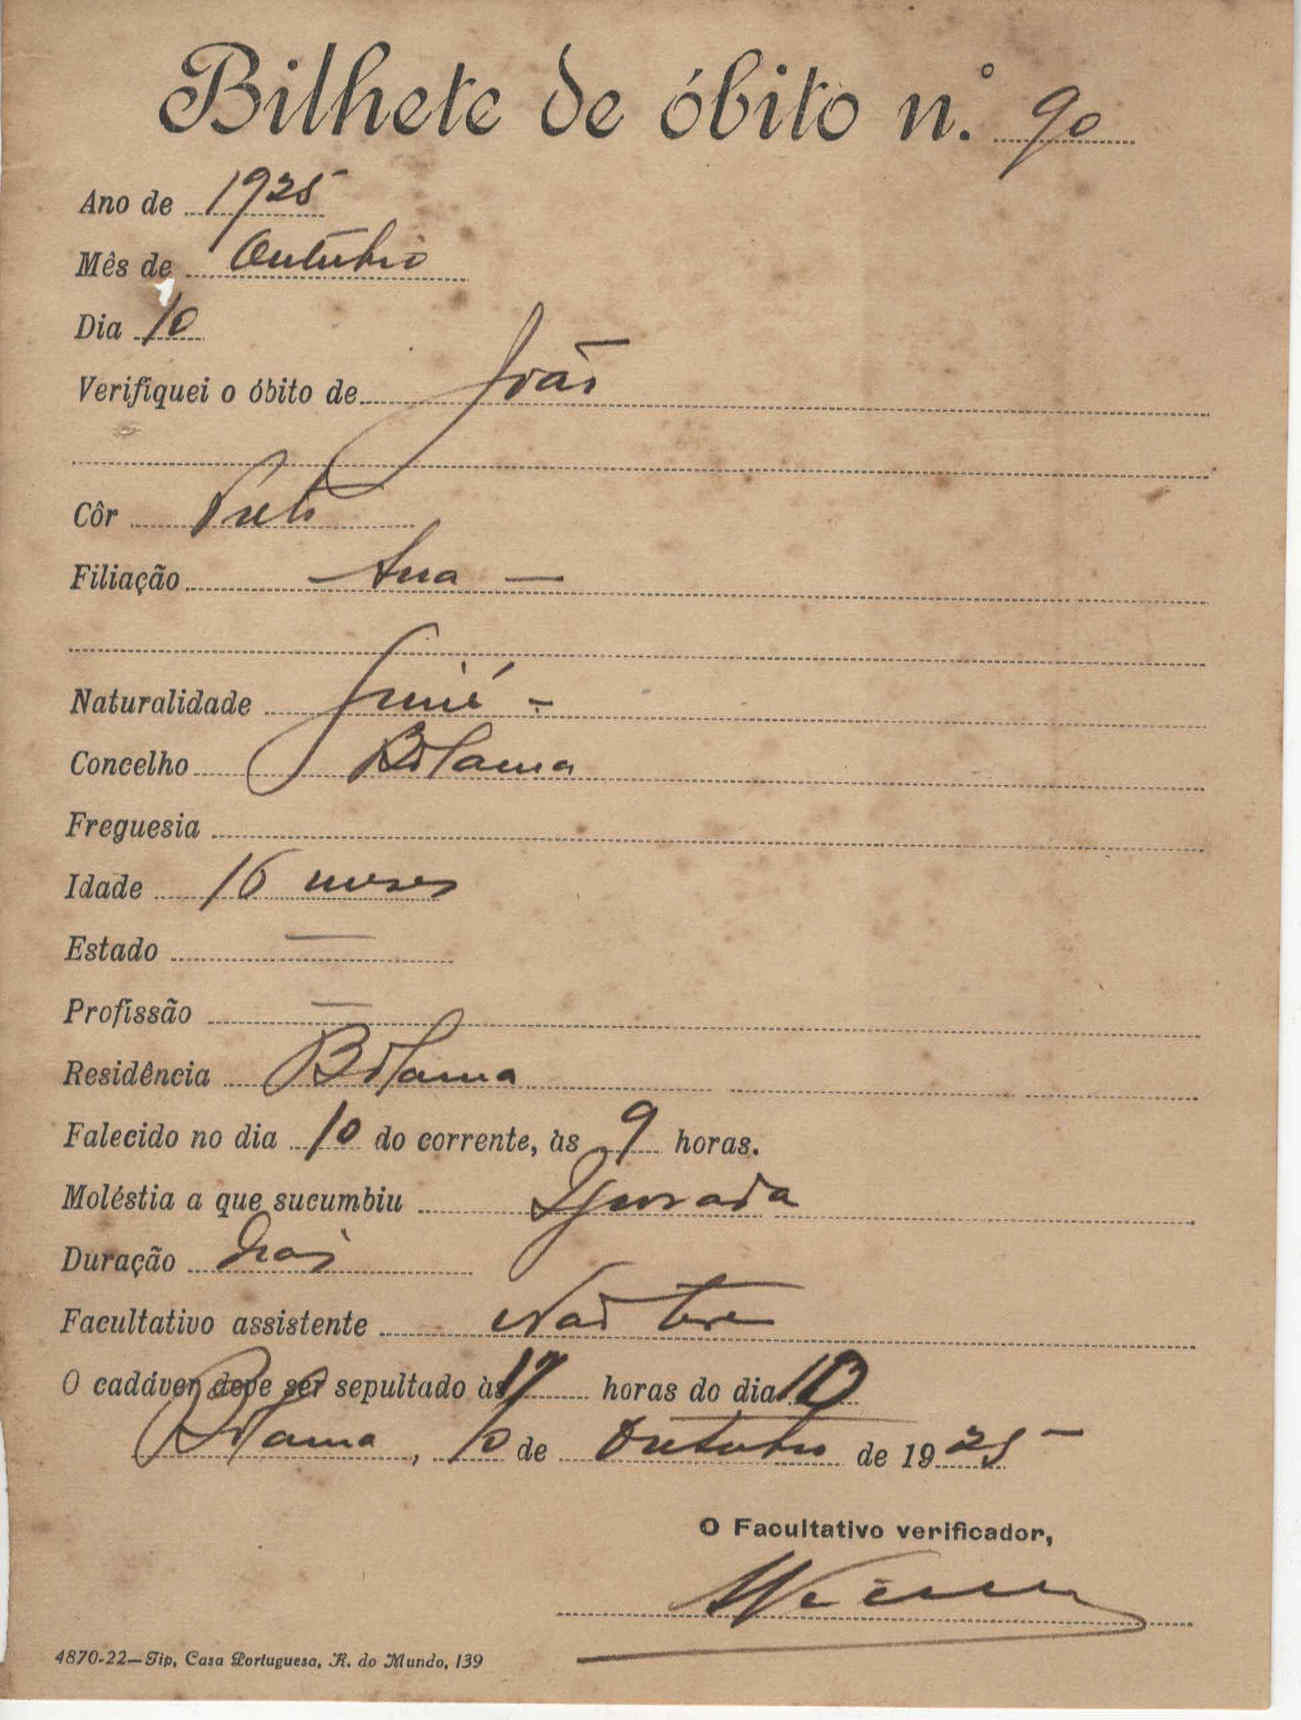 Bilhete de óbito n.º 90
Ano de 1925
Mês de Outubro
Dia 10
Verifiquei o óbito de João
Côr Preto
Filiação — Ana —
Naturalidade Guiné -
Concelho Bolama
Freguesia
Idade 16 meses
Estado —
Profissão —
Residência Bolama
Falecido no dia 10 do corrente, às 9 horas.
Moléstia a que sucumbiu Ignorada
Duração
Facultativo assistente Não teve
O cadáver deve ser sepultado às 17 horas do dia 10
Bolama, 10 de Outubro de 1925
O Facultativo verificador,
4870-22—Tip. Casa Portuguesa, R. do Mundo, 139